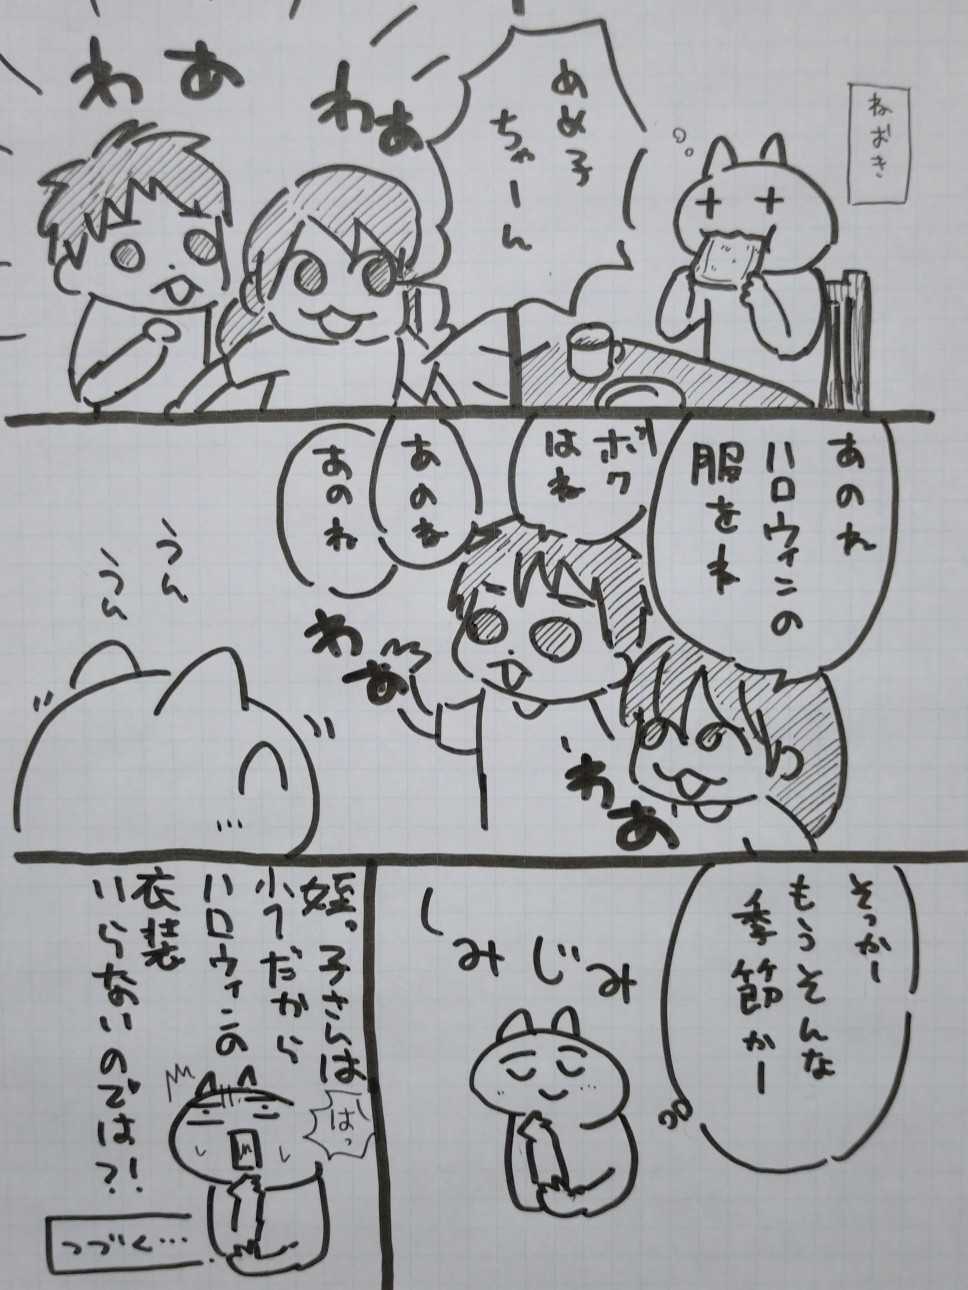 ねおき
あめ子
ちゃーん
わあ
わあ
あのね
ハロウィンの
服をね
ボク
はね
あのね
あのね
わあ
わあ
うん
うん
そっかー
もうそんな
季節かー
しみじみ
姪っ子さんは
小1だから
ハロウィンの
衣装
いらないのでは?!
はっ
つづく…